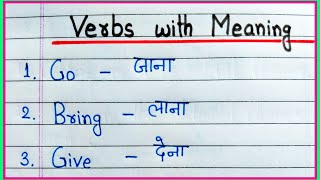 Verbs with Meaning
1. Go - जाना
2. Bring - लाना
3. Give - देना